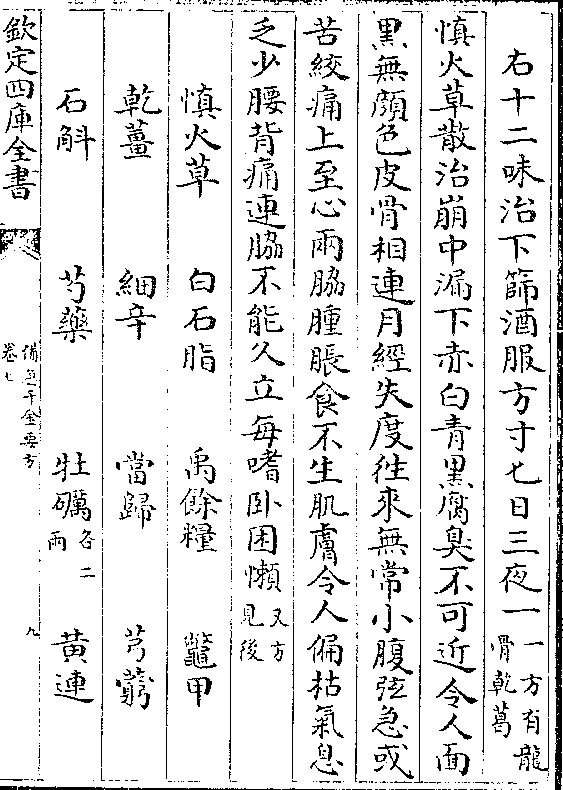 右十二味治下篩酒服方寸匕日三夜一一方有龍骨乾葛
慎火草散治崩中漏下赤白青黒腐臭不可近令人面
黒無顔色皮骨相連月經失度徃來無常小腹弦急或
苦絞痛上至心兩脇腫脹食不生肌膚令人偏枯氣息
乏少腰背痛連脇不能久立每嗜卧困懶又方見後
慎火草 白石脂 禹餘糧 鼈甲
乾薑 細辛 當歸 芎藭
石斛 芍藥 牡礪各二兩 黃連
欽定四庫全書 備急千金要方 卷七 九